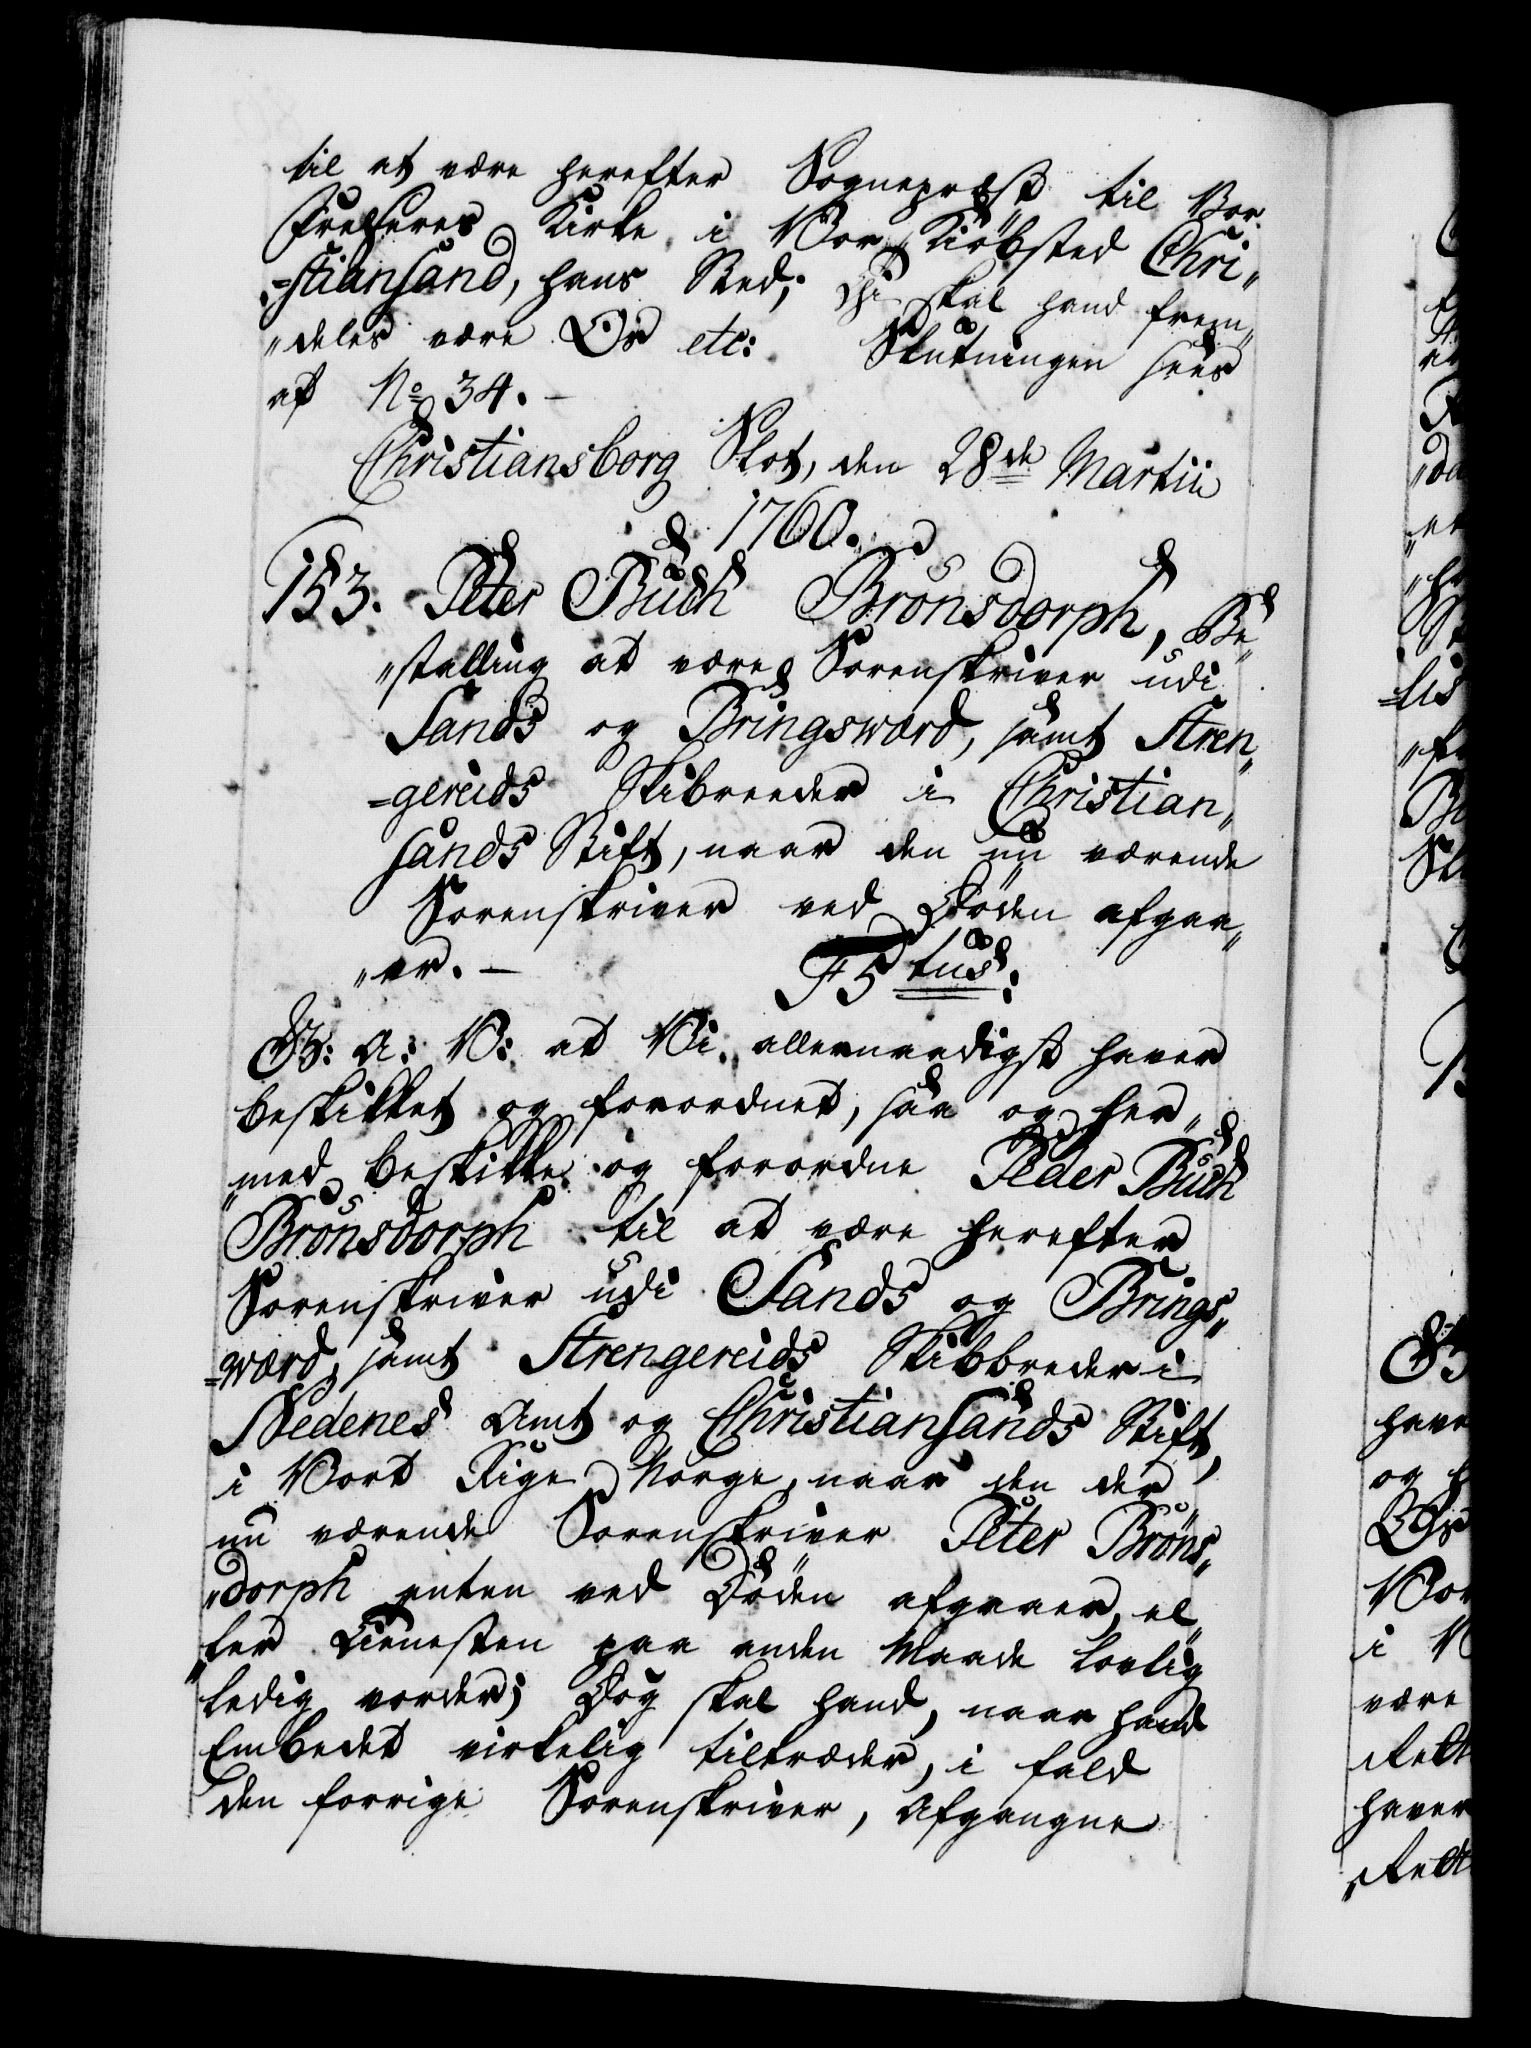 til at være herefter Sognepræst til Vor
Frelseres Kirke i Vor Kiøbsted Chri„
=stiansand, hans Sted; Thi skal hand frem„
„deles være Os etc: Slutningen sees
af No 34. –
Christiansborg Slot, den 28de Martii
1760.
153. Peter Buch Brönsdorph, Be„
„stalling at være Sorenskriver udi
Sands og Bringsværd, samt Stren„
=gereids Skibreeder i Christian„
sands Stift, naar den nu værende
Sorenskriver ved Døden afgaa„
„er. – F5tus:
G: A: V: at Vi allernaadigst haver
beskikket og forordnet, saa og her„
„med beskikke og forordne Peder Buch
Brönsdorph til at være herefter
Sorenskriver udi Sands og Brings„
=værd, samt Strengereids Skibbreder i
Nedenes Amt og Christiansands Stift,
i Vort Rige Norge, naar den der
nu værende Sorenskriver Peter Bröns„
„dorph enten ved Døden afgaaer, el„
„ler Tienesten paa anden Maade lovlig
ledig vorder; Dog skal hand, naar hand
Embedet virkelig tiltræder, i fald
den forrige Sorenskriver, Afgangne